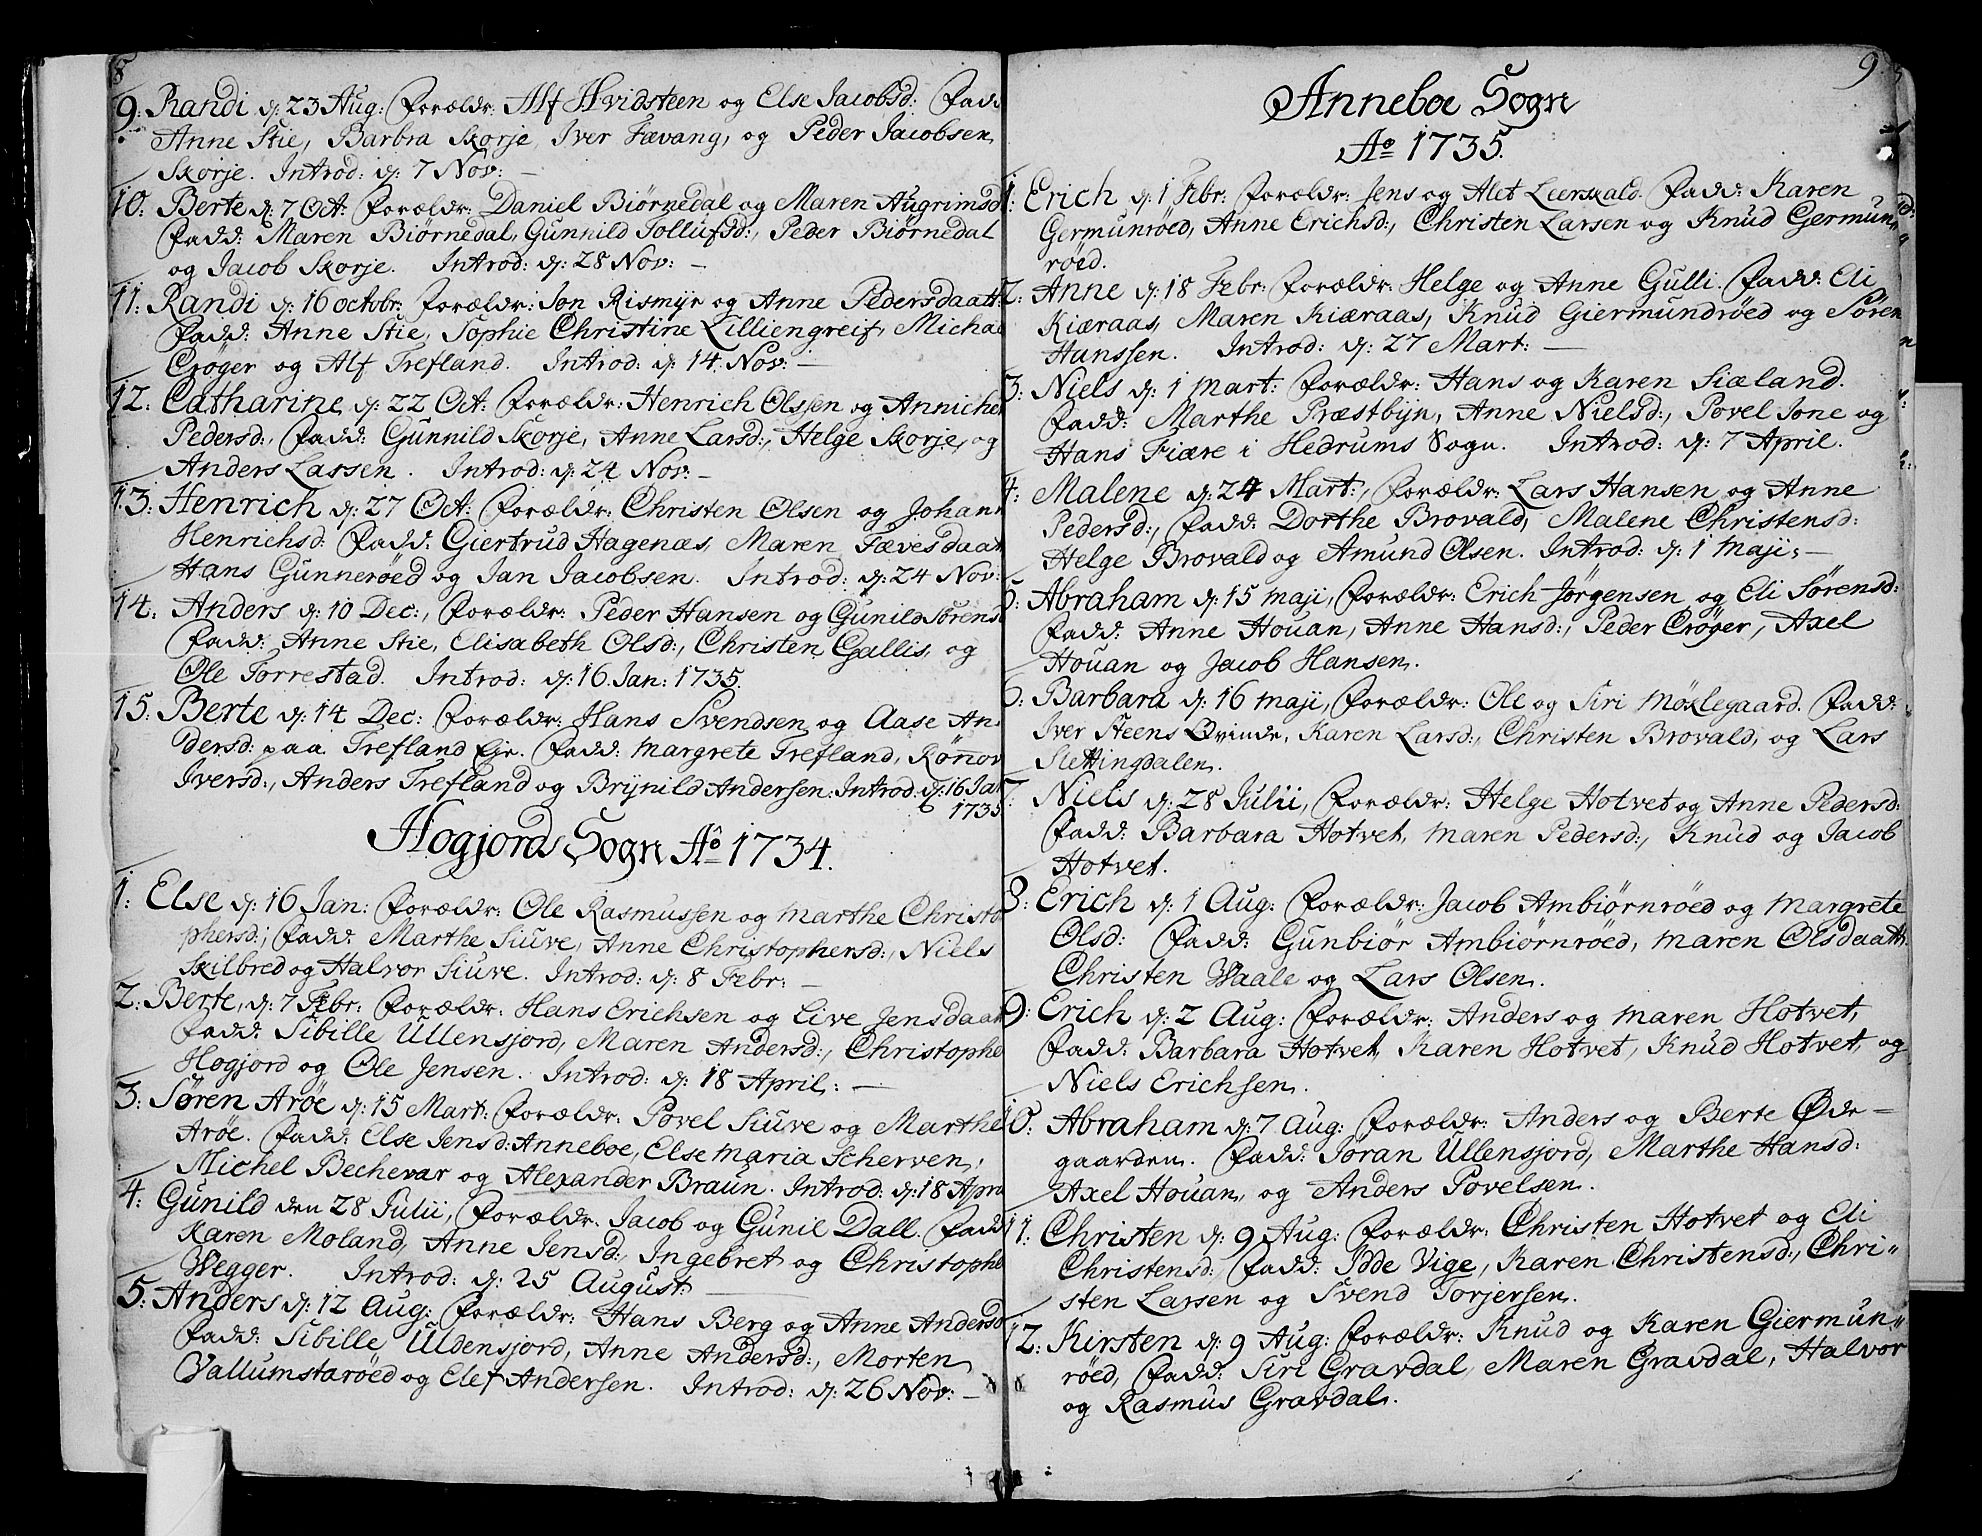 8
9: Randi d: 23 Aug: Forældr: Alf Hvidsteen og Else Jacobsd: Fadd
Anne Stie, Barbra Skorje, Iver Fævang, og Peder Jacobsen
Skorje. Introd: d: 7 Nov: —
10: Berte d: 7 Oct: Forældr: Daniel Biørnedal og Maren Augrimsd
Fadd: Maren Biørnedal, Gunnild Tollufsd:, Peder Biørnedal
og Jacob Skorje. Introd: d: 28 Nov: —
11: Randi d: 16 octobr: Forældr: Jon Rismyr og Anne Pedersdaatt:
Fadd: Anne Stie, Sophie Christine Lilliengreif, Michae
Crøger og Alf Trefland. Introd: d: 14 Nov: —
12: Catharine d: 22 Oct: Forældr: Henrich Olssen og Anniche
Pedersd:, Fadd: Gunnild Skorje, Anne Larsd:, Helge Skorje, og
Anders Lassen. Introd: d: 24 Nov: —
13: Henrich d: 27 Oct: Forældr: Christen Olsen og Johann
Henrichsd: Fadd: Giertrud Hagenæs, Maren Fævesdaat
Hans Gunnerøed og Jan Jacobsen. Introd: d: 24 Nov:
14: Anders d: 10 Dec:, Forældr: Peder Hansen og Gunild Sørens
Fadd: Anne Stie, Elisabeth Olsd:, Christen Gallis, og
Ole Torrestad. Introd: d: 16 Jan: 1735.
15: Berte d: 14 Dec: Forældr: Hans Svendsen og Aase An-
dersd: paa Trefland Eje. Fadd: Margrete Trefland, Rönnov
Iversd:, Anders Trefland og Brynild Andersen: Introd: d: 16 Jan
1735
Hogjord Sogn Ao 1734.
1: Else d: 16 Jan: Forældr: Ole Rasmussen og Marthe Christo
phersd:, Fadd: Marthe Siuve, Anne Christophersd:, Niels
Skilbred og Halvor Siuve. Introd: d: 8 Febr: —
2: Berte, d: 7 Febr: Forældr: Hans Erichsen og Live Jensdaat
Fadd: Sibille Ullensjord, Maren Andersd:, Christophe
Hogjord og Ole Jensen. Introd: d: 18 April: —
3: Søren Arøe d: 15 Mart: Forældr: Povel Siuve og Marthe
Arøe. Fadd: Else Jensd: Anneboe, Else Maria Scherven,
Michel Bechevar og Alexander Braun. Introd: d: 18 Apri
4: Gunild den 28 Julii, Forældr: Jacob og Gunil Dall. Fadd
Karen Moland, Anne Jensd:, Ingebret og Christophe
Wegger. Introd: d: 25 August: —
5: Anders d: 12 Aug: Forældr: Hans Berg og Anne Andersd
Fadd: Sibille Uldensjord, Anne Andersd:, Morten
Vallumstarøed og Elef Andersen. Introd: d: 26 Nov: —
9
Anneboe Sogn
Ao 1735.
1: Erich d: 1 Febr: Forældr: Jens og Alet Leerskald. Fadd: Karen
Germunrøed, Anne Erichsd:, Christen Larsen og Knud Germun„
røed.
2: Anne d: 18 Febr: Forældr: Helge og Anne Gulli. Fadd: Eli
Kiæraas, Maren Kiæraas, Knud Giermundrøed og Søren
Hanssen. Introd: d: 27 Mart: —
3: Niels d: 1 Mart: Forældr: Hans og Karen Siæland.
Fadd: Marthe Præstbyn, Anne Nielsd:, Povel Jone og
Hans Fiære i Hedrums Sogn. Introd: d: 7 April.
4: Malene d: 24 Mart:, Forældr: Lars Hansen og Anne
Pedersd:, Fadd: Dorthe Brovald, Malene Christensd:
Helge Brovald og Amund Olsen. Introd: d: 1 Maji: —
5: Abraham d: 15 Maji, Forældr: Erich Jørgensen og Eli Sørensd:
Fadd: Anne Houan, Anne Hansd:, Peder Crøger, Axel
Houan og Jacob Hansen.
6: Barbara d: 16 Maji, Forældr: Ole og Siri Möklegaard. Fadd:
Iver Steens Qvinde, Karen Larsd:, Christen Brovald, og Lars
Slettingdalen.
7: Niels d: 28 Julii, Forældr: Helge Hotvet og Anne Pedersd:
Fadd: Barbara Hotvet, Maren Pedersd:, Knud og Jacob
Hotvet.
8: Erich d: 1 Aug: Forældr: Jacob Ambiørnrøed og Margrete
Olsd: Fadd: Gunbiør Ambiørnrøed, Maren Olsdaatt:
Christen Waale og Lars Olsen.
9: Erich d: 2 Aug: Forældr: Anders og Maren Hotvet,
Fadd: Barbara Hotvet, Karen Hotvet, Knud Hotvet, og
Niels Erichsen.
10: Abraham d: 7 Aug: Forældr: Anders og Berte Øde-
gaarden. Fadd: Joran Ullensjord, Marthe Hansd:
Axel Houan, og Anders Povelsen.
11: Christen d: 9 Aug: Forældr: Christen Hotvet og Eli
Christensd: Fadd: Idde Vige, Karen Christensd:, Chri„
sten Larsen og Svend Torjersen.
12: Kirsten d: 9 Aug: Forældr: Knud og Karen Giermun„
røed, Fadd: Siri Gravdal, Maren Gravdal, Halvor
og Rasmus Gravdal.